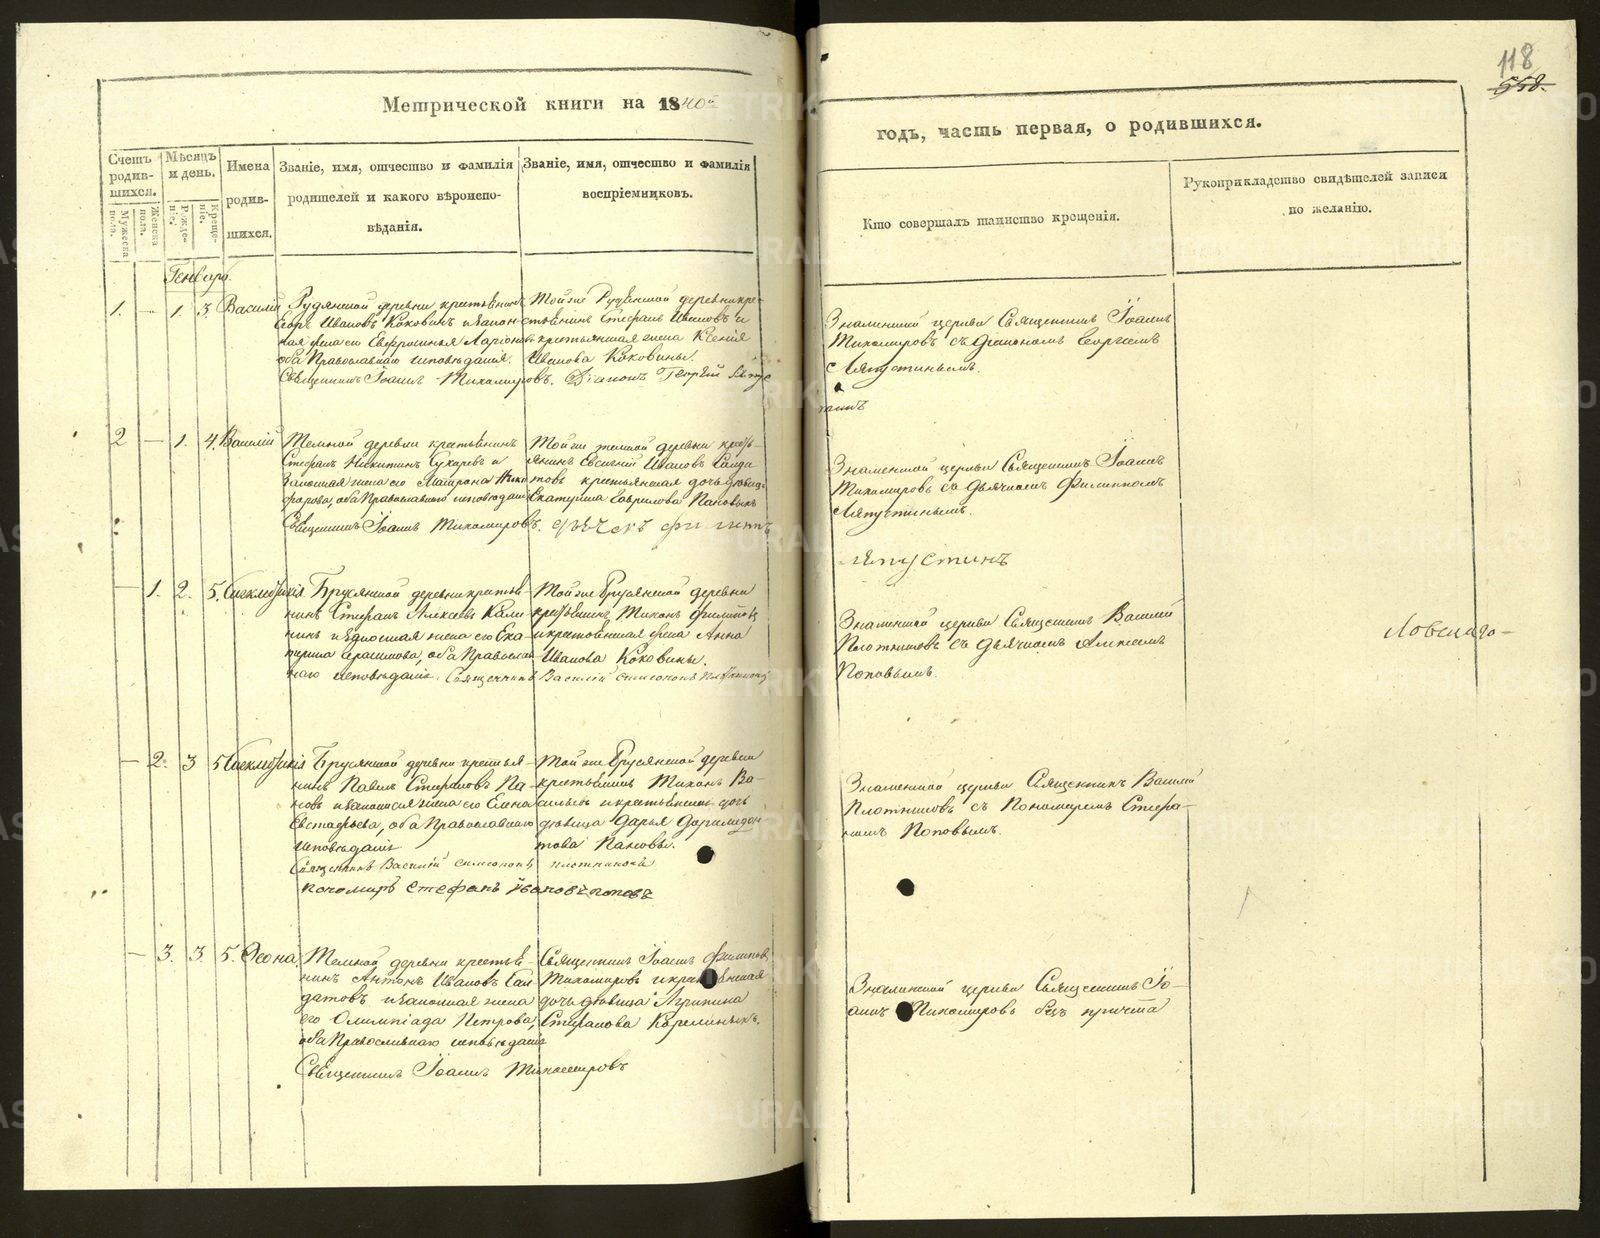 118
558.
Метрической книги на 1840й
годъ, часть первая, о родившихся.
Счетъ родив-шихся.
Мужеска пола.
Женска пола.
Мѣсяцъ и день.
Рожде-нiе.
Креще-нiе.
Имена родив-шихся.
Званiе, имя, отчество и фамилiя
родителей и какого вѣроиспо-
вѣданiя.
Званiе, имя, отчество и фамилiя
воспрiемниковъ.
Кто совершалъ таинство крещенiя.
Рукоприкладство свидѣтелей записи
по желанiю.
Генваря
1. — 1. 3. Василiй
Рудянской деревни крестьянинъ
Егоръ Ивановъ Коковинъ и закон-
ная жена его Евфросинья Ларiонова
оба Православнаго исповѣданiя.
Священникъ Iоаннъ Тихомировъ. Дiаконъ Георгiй Ляпус
тинъ
Той же Рудянской деревни кре-
стьянинъ Стефанъ Ивановъ и
крестьянская жена Ксенiя
Иванова Коковины.
Знаменской церкви Священникъ Iоаннъ
Тихомировъ съ Дiакономъ Георгiемъ
Ляпустинымъ.
2 — 1. 4. Василiй
Темной деревни крестьянинъ
Стефанъ Никитинъ Сухаревъ и
законная жена его Матрона Ники
форова, оба Православнаго исповѣданiя
Священникъ Iоаннъ Тихомировъ. Дьячекъ Филиппъ
Ляпустинъ
Той же темной деревни кресть-
янинъ Евсигнiй Ивановъ Салда
товъ крестьянская дочь дѣвица
Екатерина Гаврилова Пановыхъ
Знаменской церкви Священникъ Iоаннъ
Тихомировъ съ Дьячкомъ Филиппомъ
Ляпустинымъ.
— 1. 2. 5. Сигклитикiя
Брусянской деревни крестья-
нинъ Стефанъ Алексѣевъ Кали
нинъ и законная жена его Ека-
терина Герасимова, оба Православ
наго исповѣданiя. Священникъ Василiй Симеоновъ Плотниковъ
Той же Брусянской деревни
крестьянинъ Тихонъ Филиповъ
и крестьянская жена Анна
Иванова Коковины.
Знаменской церкви Священникъ Василiй
Плотниковъ съ Дьячкомъ Алексѣемъ
Поповымъ.
— 2. 3 5 Сигклитикiя
Брусянской деревни крестья-
нинъ Павелъ Стефановъ Па-
новъ и законная жена его Елена
Евстафьева, оба Православнаго
исповѣданiя
Священникъ Василiй Симеоновъ Плотниковъ
Пономарь Стефанъ Ивановъ Поповъ
Той же Брусянской деревни
крестьянинъ Тихонъ Ва-
сильевъ и крестьянская дочь
дѣвица Дарья Доримедон-
това Пановы.
Знаменской церкви Священникъ Василiй
Плотниковъ съ Пономаремъ Стефа-
номъ Поповымъ.
— 3. 3. 5. Ѳеона.
Темной деревни крестья-
нинъ Антонъ Ивановъ Сал-
датовъ и законная жена
его Олимпiада Петрова,
оба Православнаго исповѣданiя
Священникъ Iоаннъ Тихомировъ
Священникъ Iоаннъ Филиповъ
Тихомировъ и крестьянская
дочь дѣвица Агрипина
Стефанова Карелиныхъ.
Знаменской церкви Священникъ Iо-
аннъ Тихомировъ безъ причта